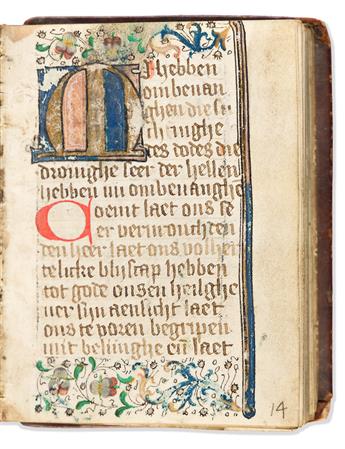 Mi hebben
ombevan
ghen die su
chtinghe
des dodes die
droinghe seer der hellen
hebben mi ombevanghe
Coemt laet ons se
er vervrouchten
den heer laet ons volher
telicke blijscap hebben
tot gode onsen heilghe
uer sijn aenlicht laet
ons te voren begripen
mit belijnghe en̄ laet
14